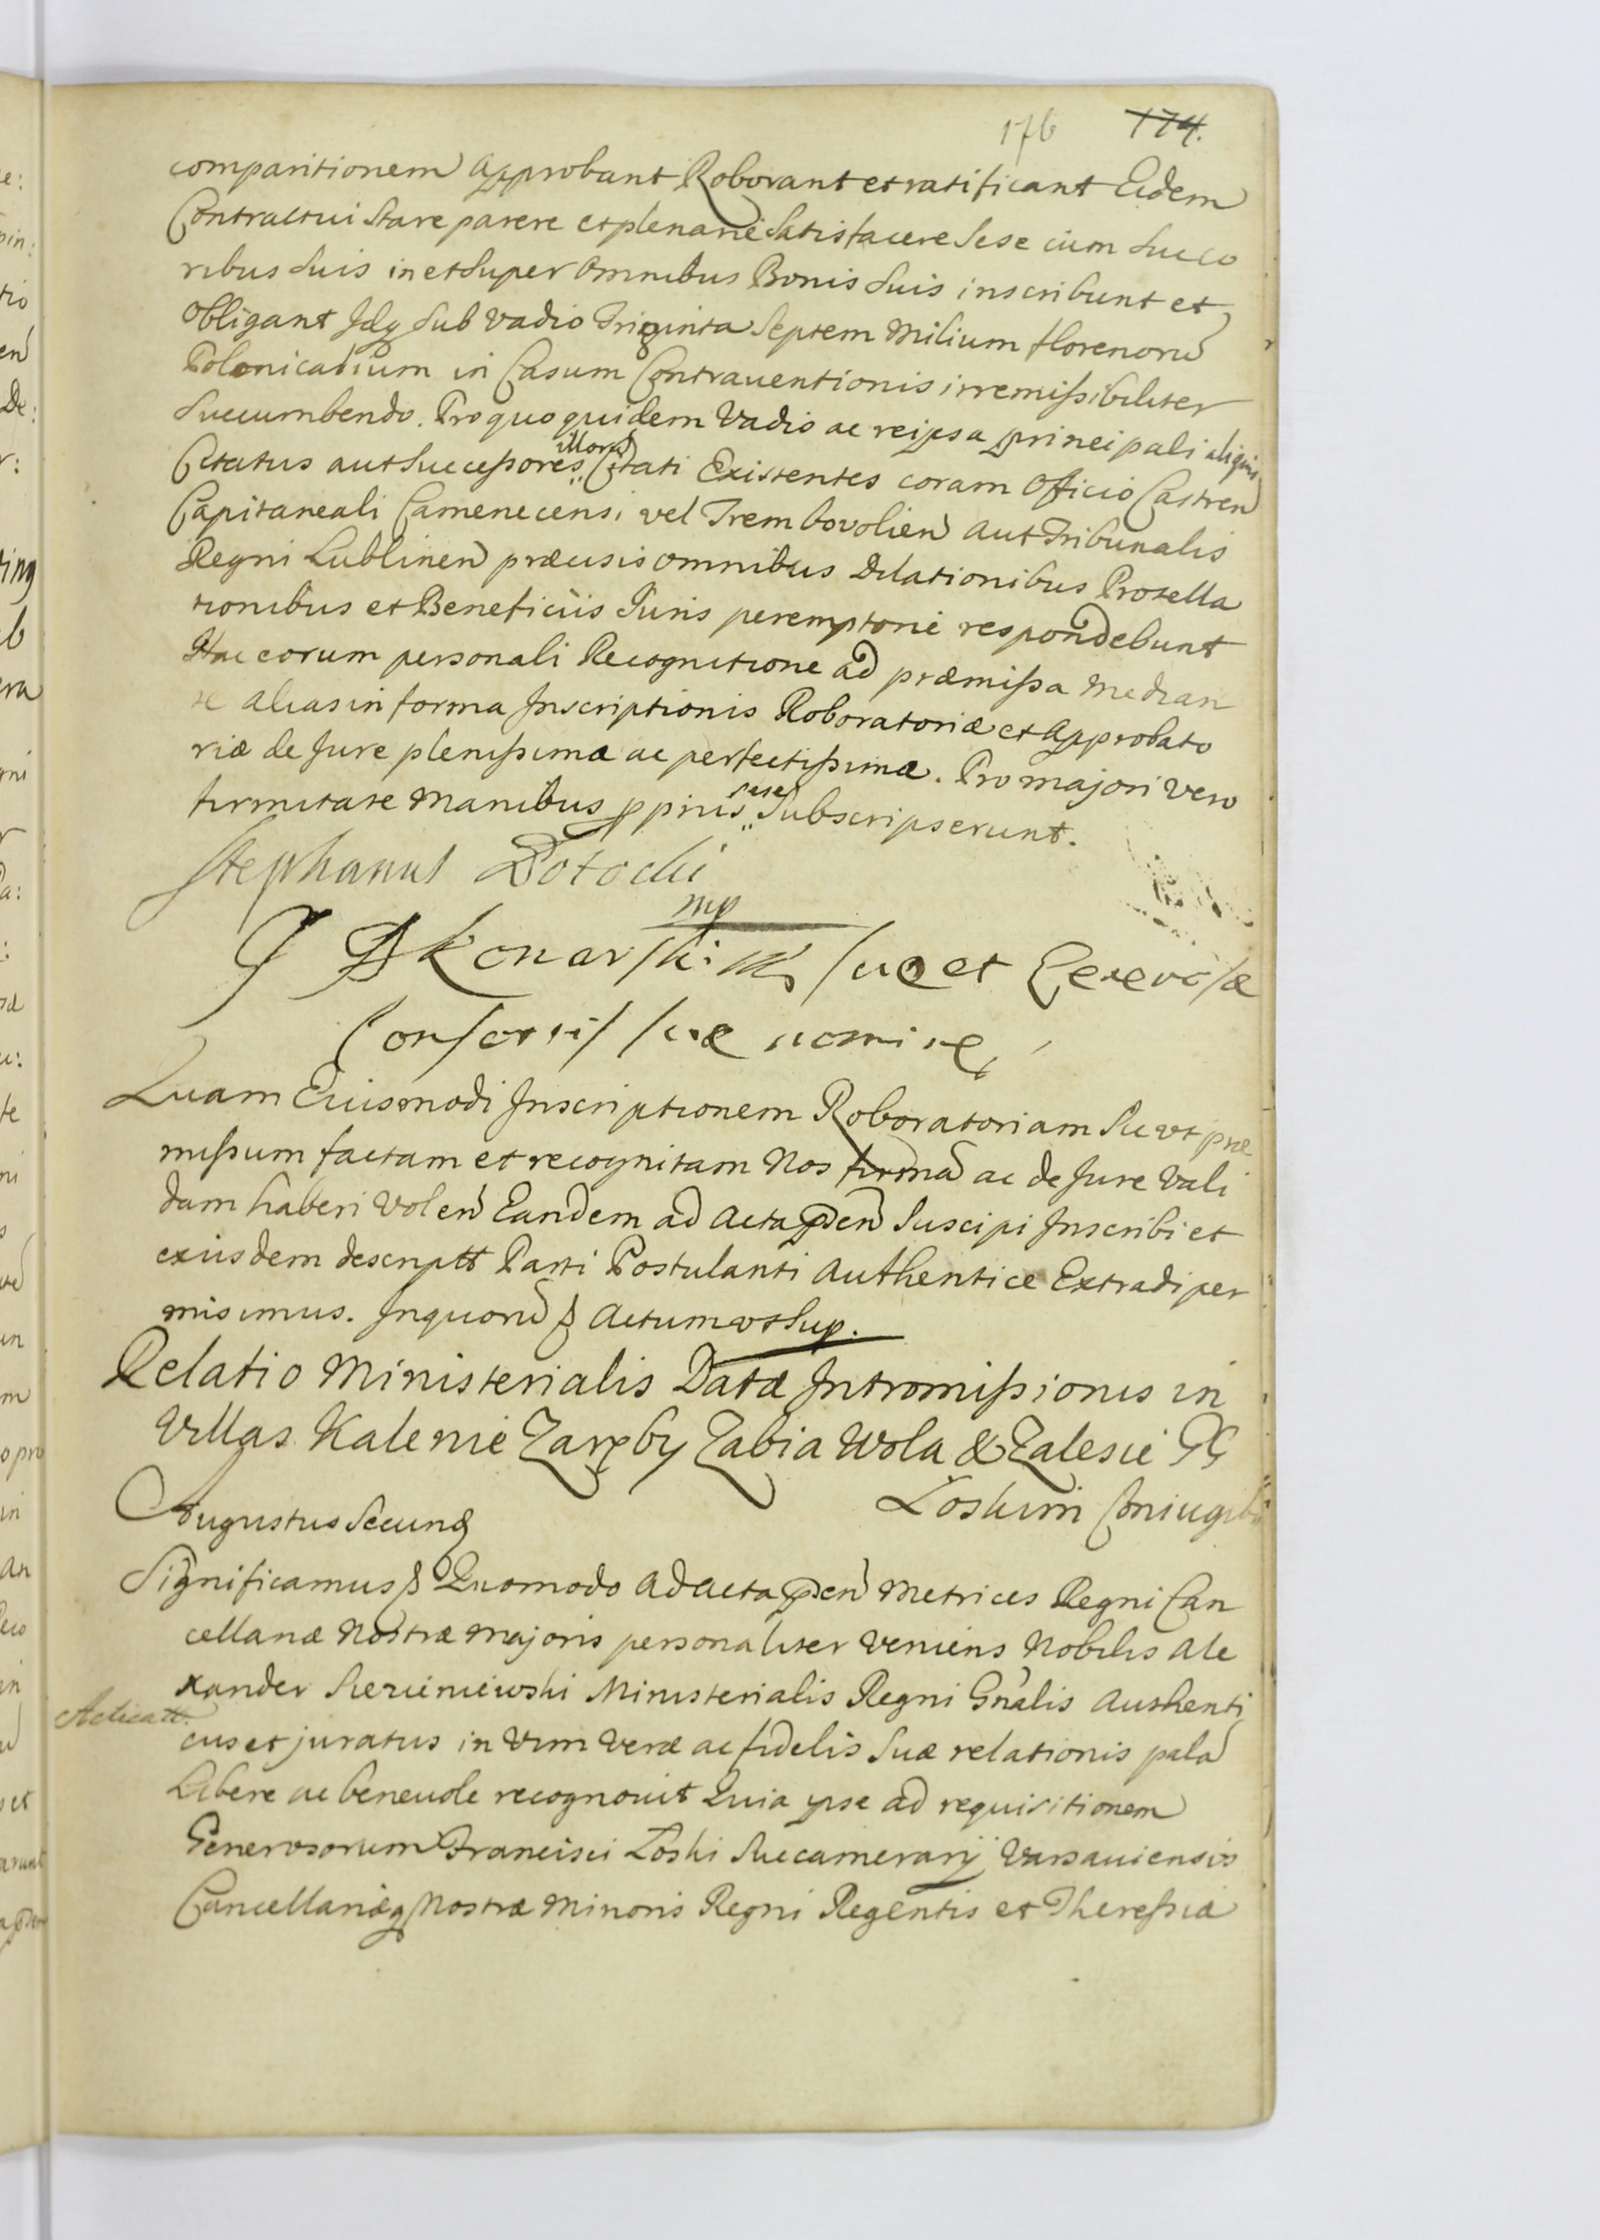 176 174.
comparitionem approbant Roborant et ratificant Eidem
Contractui Stare parere et plenarie Satisfacere Sese cum Succo
ribus Suis in et Super Omnibus Bonis Suis inscribunt et
Obligant Idq Sub vadio Triginta Septem Milium florenorū
Polonicalium in Casum Contrauentionis irremissibiliter
Succumbendo. Pro quo quidem Vadio ac reipsa principali aliquis
Citatus aut Successores illorū Citati Existentes coram Officio Castren
Capitaneali Camenecensi vel Trembovolien aut Tribunalis
Regni Lublinen præcisis omnibus Dilationibus Protella
tionibus et Beneficiis Juris peremptorie respondebunt
Hac eorum personali Recognitione ad præmissa Median
te alias in forma Inscriptionis Roboratoriæ et Approbato
riæ de Jure plenissimæ ac perfectissimæ. Pro majori vero
firmitate Manibus pprius sese Subscripserunt.
Stephanus Potocki
mp
Konarski mp suo et Generosæ
Consortis suæ nomine
Quam Eiusmodi Inscriptionem Roboratoriam Sic ut præ
missum factam et recognitam Nos firmā ac de Jure Vali
dam haberi Volen Eandem ad Acta pn̄ Suscipi Inscribi et
exiusdem descriptt Parti Postulanti Authentice Extradi per
misimus. In quorū ꝭ Actum ut Sup.
Relatio Ministerialis Datæ Intromissionis in
Villas Kalenie Zaręby Zabia Wola & Zalesie GG
Łoskim Coniugibus
Augustus Secund
Significamus ꝭ Quomodo ad Acta pn̄ Metrices Regni Can
cellariæ Nostræ Majoris personaliter Veniens Nobilis Ale
xander Siericniewski Ministerialis Regni Gnalis Authenti
Acticatt.
cus et juratus in Vim Veræ ac fidelis Suæ relationis palā
Libere ac beneuole recognouit Quia ipse ad requisitionem
Generosorum Francisci Łoski Succamerarij Varsauiensis
Cancellariæq Nostræ Minoris Regni Regentis et Theressiæ